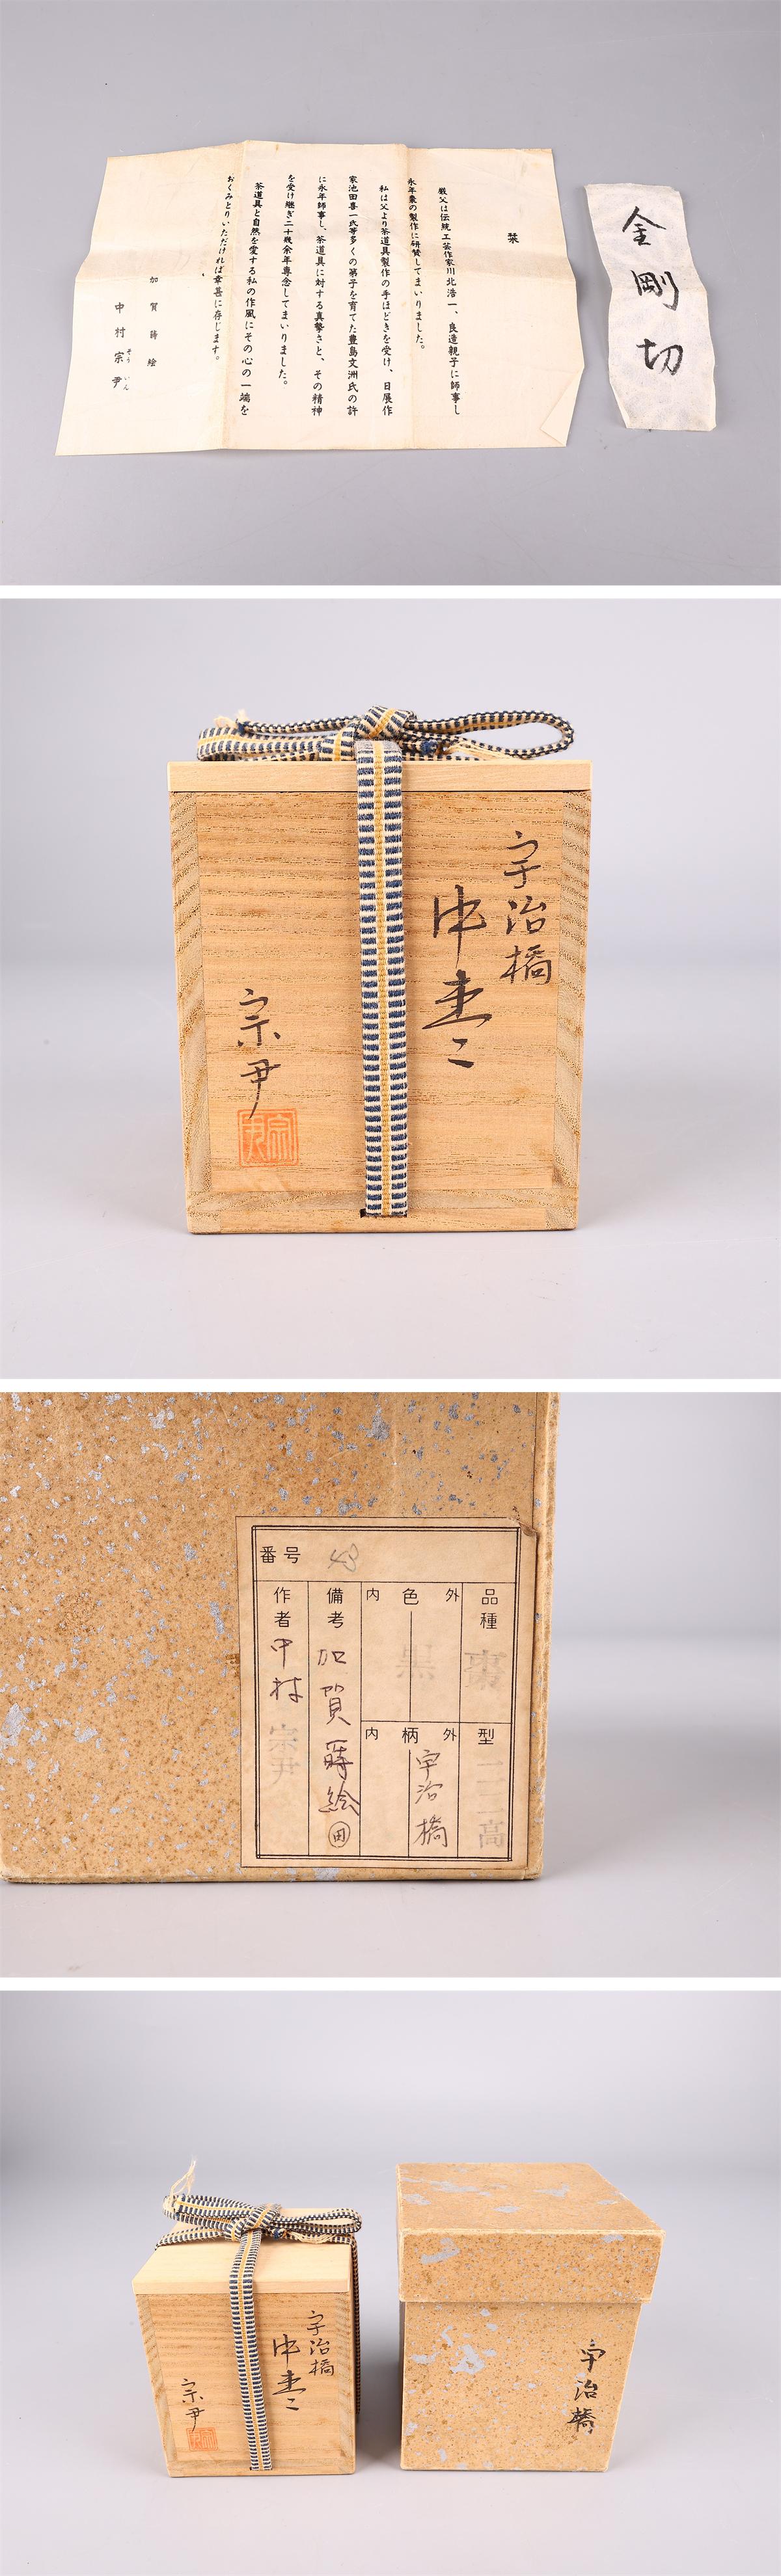 栞
厳父は伝統工芸作家川北浩一、良造親子に師事し
永年棗の製作に研賛してまいりました。
私は父より茶道具製作の手ほどきを受け、日展作
家池田喜一氏等多くの弟子を育てた豊島文洲氏の許
に永年師事し、茶道具に対する真摯さと、その精神
を受け継ぎ二十幾余年専念してまいりました。
茶道具と自然を愛する私の作風にその心の一端を
おくみとりいただければ幸甚に存じます。
加賀蒔絵
中村宗尹
そういん
金剛切
宇治橋
中棗
宗尹
宗尹
番号 43
品種 棗
型 一二高
外 色 内
黒
外 柄 内
宇治橋
備考 加賀蒔絵 田
作者 中村宗尹
宇治橋
中棗
宗尹
宇治橋